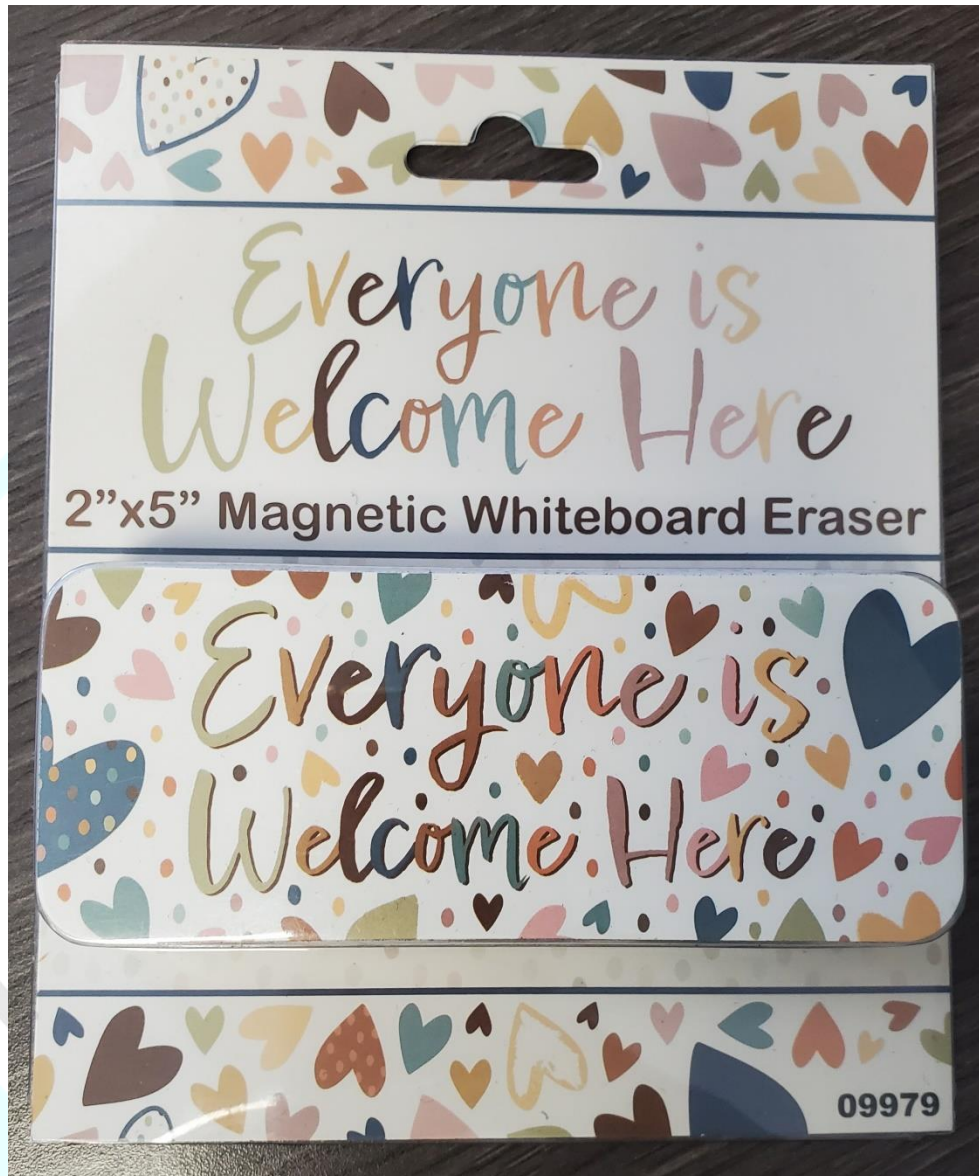 Everyone is
Welcome Here
2”x5” Magnetic Whiteboard Eraser
Everyone is
Welcome Here
09979